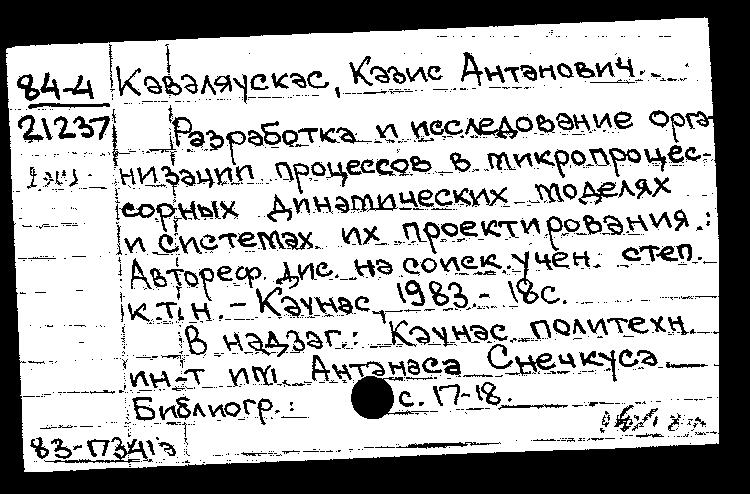 84-4 Каваляускас, Казис Антанович.
21237
Разработка и исследование орга-
низации процессов в микропроцес-
сорных динамических моделях
и системах их проектирования.:
Автореф. дис. на соиск. учен. степ.
к.т.н. – Каунас, 1983. – 18с.
В надзаг.: Каунас. политехн.
ин-т им. Антанаса Снечкуса.
Библиогр.: с. 17-18.
83-17341а